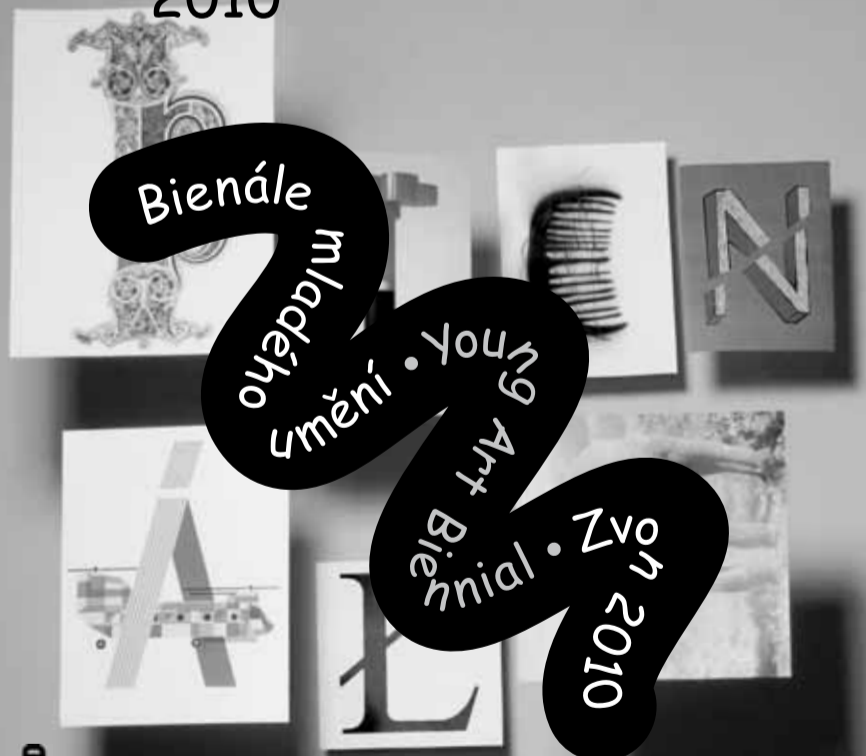 2010
Bienále mladého umění • Young Art Biennial • Zvon 2010
N
Á
Ł